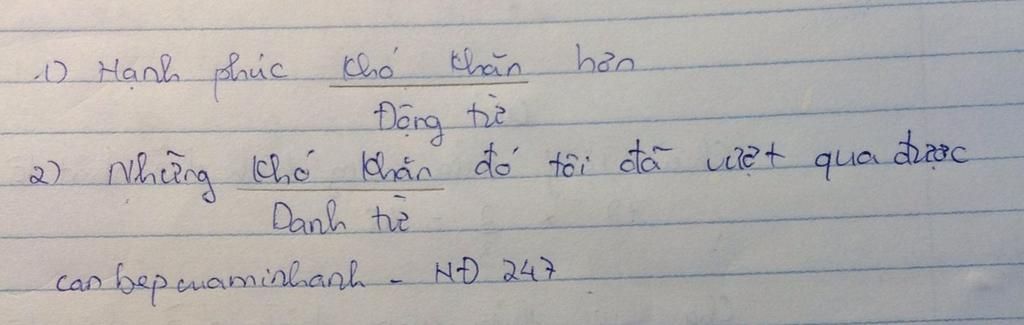 1) Hạnh phúc khó khăn hơn
Động từ
2) Những khó khăn đó tôi đã vượt qua được
Danh từ
canbepcuaminhanh - NĐ 247